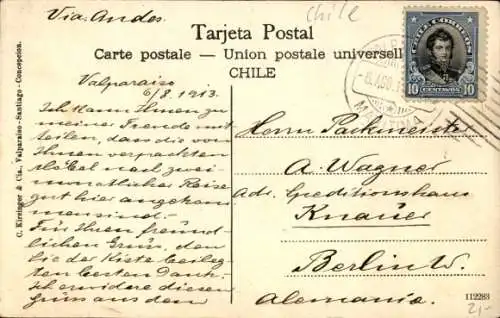 Via Andes
Chile
Tarjeta Postal
Carte postale — Union postale universell
CHILE
CHILE CORREOS
10 CENTAVOS 10
MARITIMA
Valparaiso
6/8. 1913.
Ich kann Ihnen zu
meiner Freude mit-
teilen, dass die von
Ihnen verpackten
Möbel nach zwei-
monatlicher Reise
gut hier angekom-
men sind.
Für Ihren freund-
lichen Gruss, den
Sie der Kiste beileg-
ten besten Dank,
ich erwidere diesen
Gruss aus dem
Herrn Packmeister
A. Wagner
Adr. Speditionshaus
Knauer
Berlin W.
Alemania.
C. Kirsinger & Cia., Valparaiso-Santiago-Concepcion.
112283
2,-